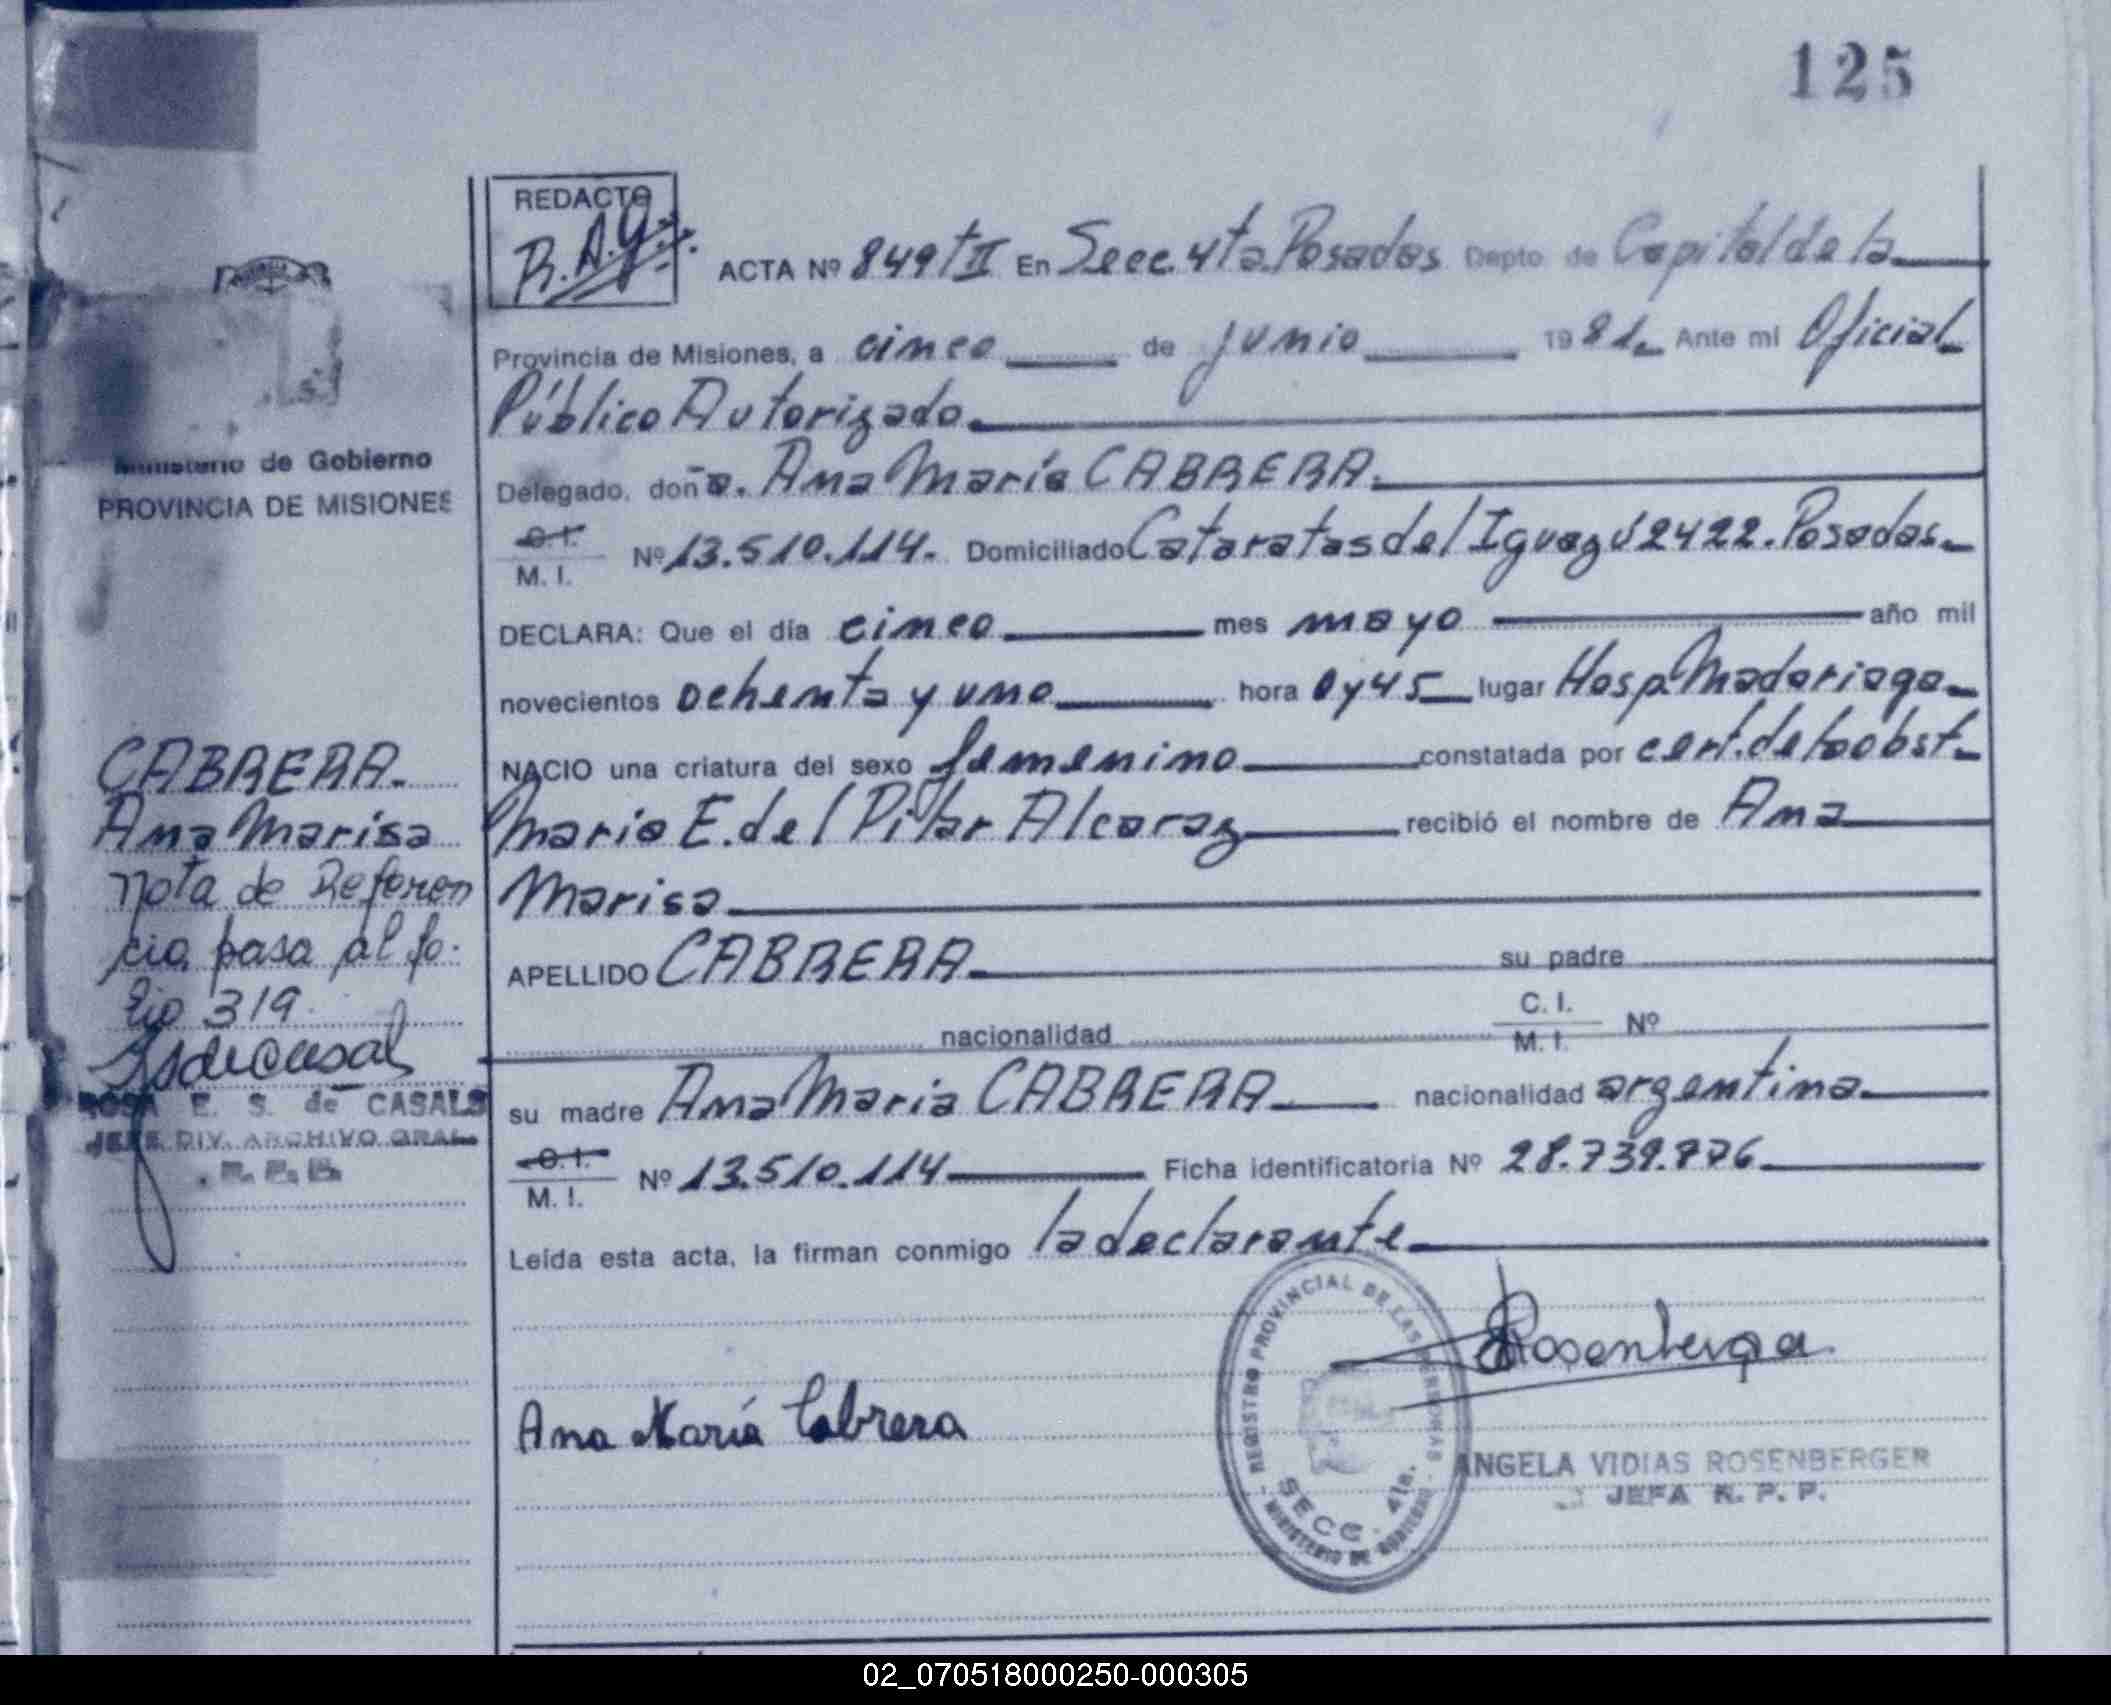 125
REDACTO
R.A.G.
ACTA Nº 849 t II En Secc. 4ta. Posadas Depto de Capital de la
Provincia de Misiones, a cinco de junio 1981 Ante mi Oficial
Público Autorizado.
Delegado, doña. Ana María CABRERA.
C.I.
M. I.
Nº 13.510.114. Domiciliado Cataratas del Iguazú 2422. Posadas
DECLARA: Que el día cinco mes mayo año mil
novecientos ochenta y uno hora 0 y 45 lugar Hosp. Madariaga
NACIO una criatura del sexo femenino constatada por cert. de la obst.
Maria E. del Pilar Alcaraz recibió el nombre de Ana
Marisa
APELLIDO CABRERA su padre
nacionalidad
C. I.
M. I.
Nº
su madre Ana Maria CABRERA nacionalidad argentina
C.I.
M. I.
Nº 13.510.114 Ficha identificatoria Nº 28.739.776
Leída esta acta, la firman conmigo la declarante
Ana María Cabrera
REGISTRO PROVINCIAL DE LAS PERSONAS
SECC. 4ta.
MINISTERIO DE GOBIERNO
ANGELA VIDIAS ROSENBERGER
JEFA R. P. P.
Ministerio de Gobierno
PROVINCIA DE MISIONES
CABRERA.
Ana Marisa
Nota de Referen
cia pasa al fo-
lio 319.
ROSA E. S. de CASALS
JEFE DIV. ARCHIVO GRAL.
02_070518000250-000305